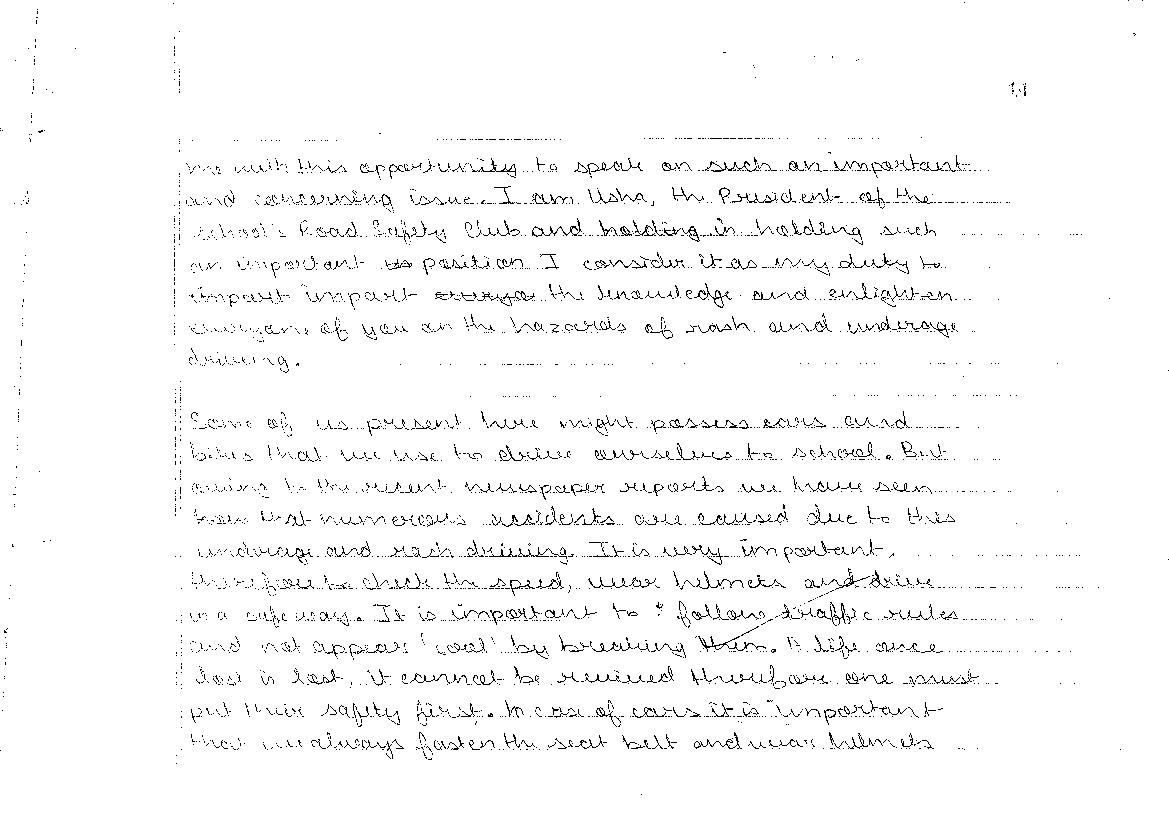 11
me with this opportunity to speak on such an important
and concerning issue. I am Usha, the President of the
school's Road Safety Club and holding in holding such
an important position I consider it as my duty to
impart impart the knowledge and enlighten
everyone of you on the hazards of rash and underage
driving.
Some of us present here might possess cars and
bikes that we use to drive ourselves to school. But
owing to the recent newspaper reports we have seen
how that numerous accidents are caused due to this
underage and rash driving. It is very important,
therefore to check the speed, wear helmets and drive
in a safe way. It is important to follow traffic rules
and not appear 'cool' by breaking them. A life once
lost is lost, it cannot be revived therefore one must
put their safety first. In case of cars it is important
that we always fasten the seat belt and wear helmets